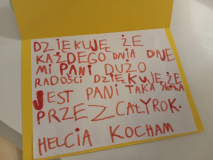 DZIĘKUJĘ ŻE
KAŻDEGO DNIA DAJE
MI PANI DUŻO
RADOŚCI DZIĘKUJĘ ŻE
JEST PANI TAKA
PRZEZ CAŁY ROK.
HELCIA KOCHAM